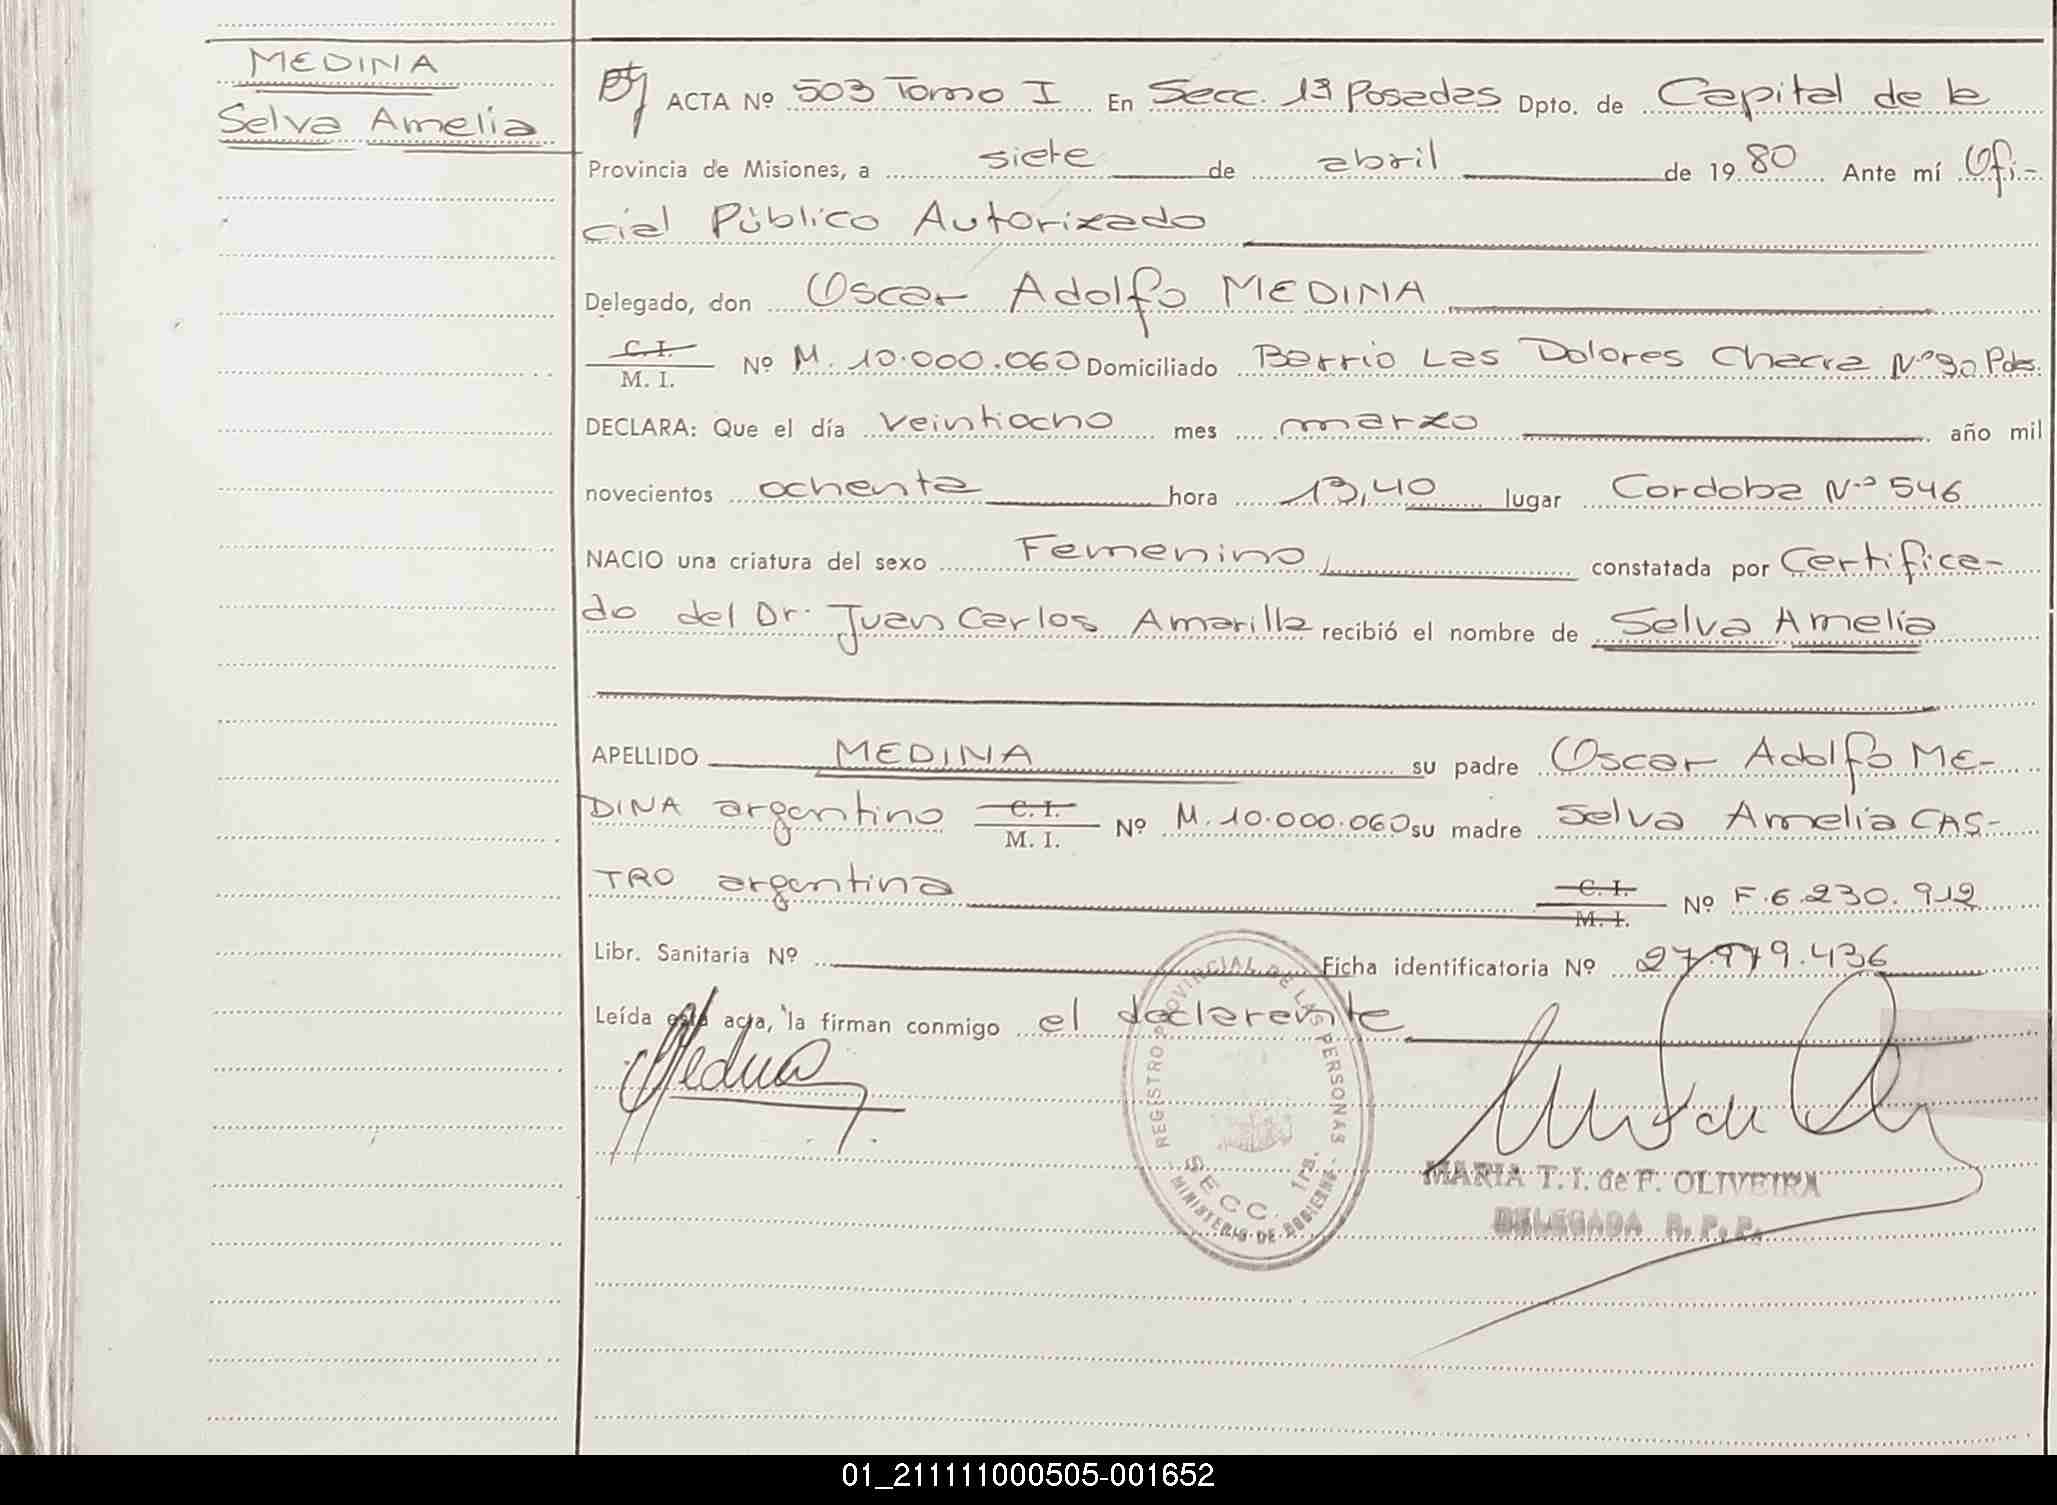 MEDINA
Selva Amelia
ACTA Nº 503 Tomo I En Secc. 1ª Posadas Dpto. de Capital de la
Provincia de Misiones, a siete de abril de 1980 Ante mí Ofi-
cial Público Autorizado
Delegado, don Oscar Adolfo MEDINA
C. I.
M. I. Nº M. 10.000.060 Domiciliado Barrio Las Dolores Chacra Nº 90 Pdas.
DECLARA: Que el día veintiocho mes marzo año mil
novecientos ochenta hora 13,40 lugar Cordoba Nº 546
NACIO una criatura del sexo Femenino constatada por Certifica-
do del Dr. Juan Carlos Amarilla recibió el nombre de Selva Amelia
APELLIDO MEDINA su padre Oscar Adolfo ME-
DINA argentino C. I. M. I. Nº M. 10.000.060 su madre Selva Amelia CAS-
TRO argentina C. I. M. I. Nº F. 6.230.912
Libr. Sanitaria Nº Ficha identificatoria Nº 27.979.436
Leída esta acta, la firman conmigo el declarante
Medina
REGISTRO PROVINCIAL DE LAS PERSONAS
SECC. 1ra.
MINISTERIO DE GOBIERNO
MARIA T. I. de F. OLIVEIRA
DELEGADA R. P. P.
01_211111000505-001652